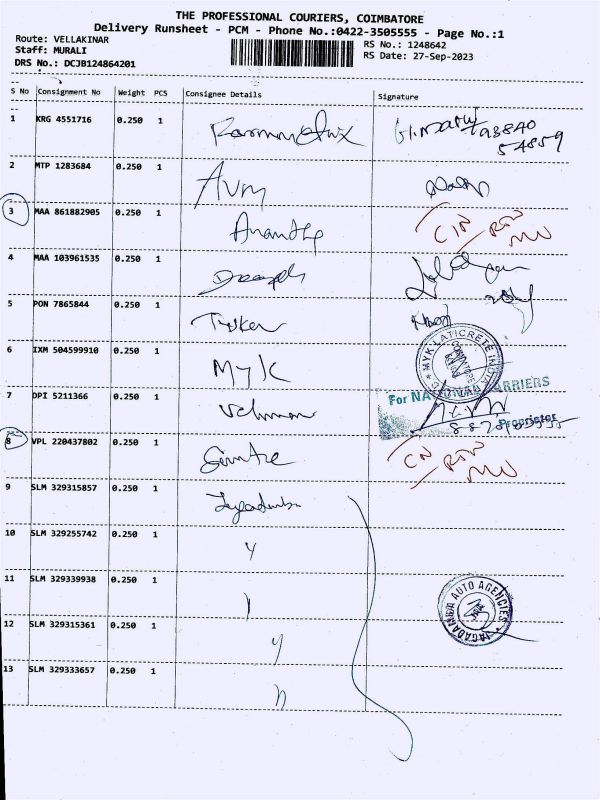 THE PROFESSIONAL COURIERS, COIMBATORE
Delivery Runsheet - PCM - Phone No.:0422-3505555 - Page No.:1
Route: VELLAKINAR
RS No.: 1248642
Staff: MURALI
RS Date: 27-Sep-2023
DRS No.: DCJB124864201
S No Consignment No Weight PCS Consignee Details Signature
1 KRG 4551716 0.250 1
93840
54859
2 MTP 1283684 0.250 1 AVM
3 MAA 861882905 0.250 1 Anandhe
4 MAA 103961535 0.250 1 Deepak
5 PON 7865844 0.250 1
6 IXM 504599910 0.250 1 MYK
MYK LATICRETE INDIA
7 DPI 5211366 0.250 1
For NATIONAL CARRIERS
Proprietor
8 VPL 220437802 0.250 1
9 SLM 329315857 0.250 1 Jagadamba
10 SLM 329255742 0.250 1 y
11 SLM 329339938 0.250 1
JAGADAMBA AUTO AGENCIES
12 SLM 329315361 0.250 1 y
13 SLM 329333657 0.250 1